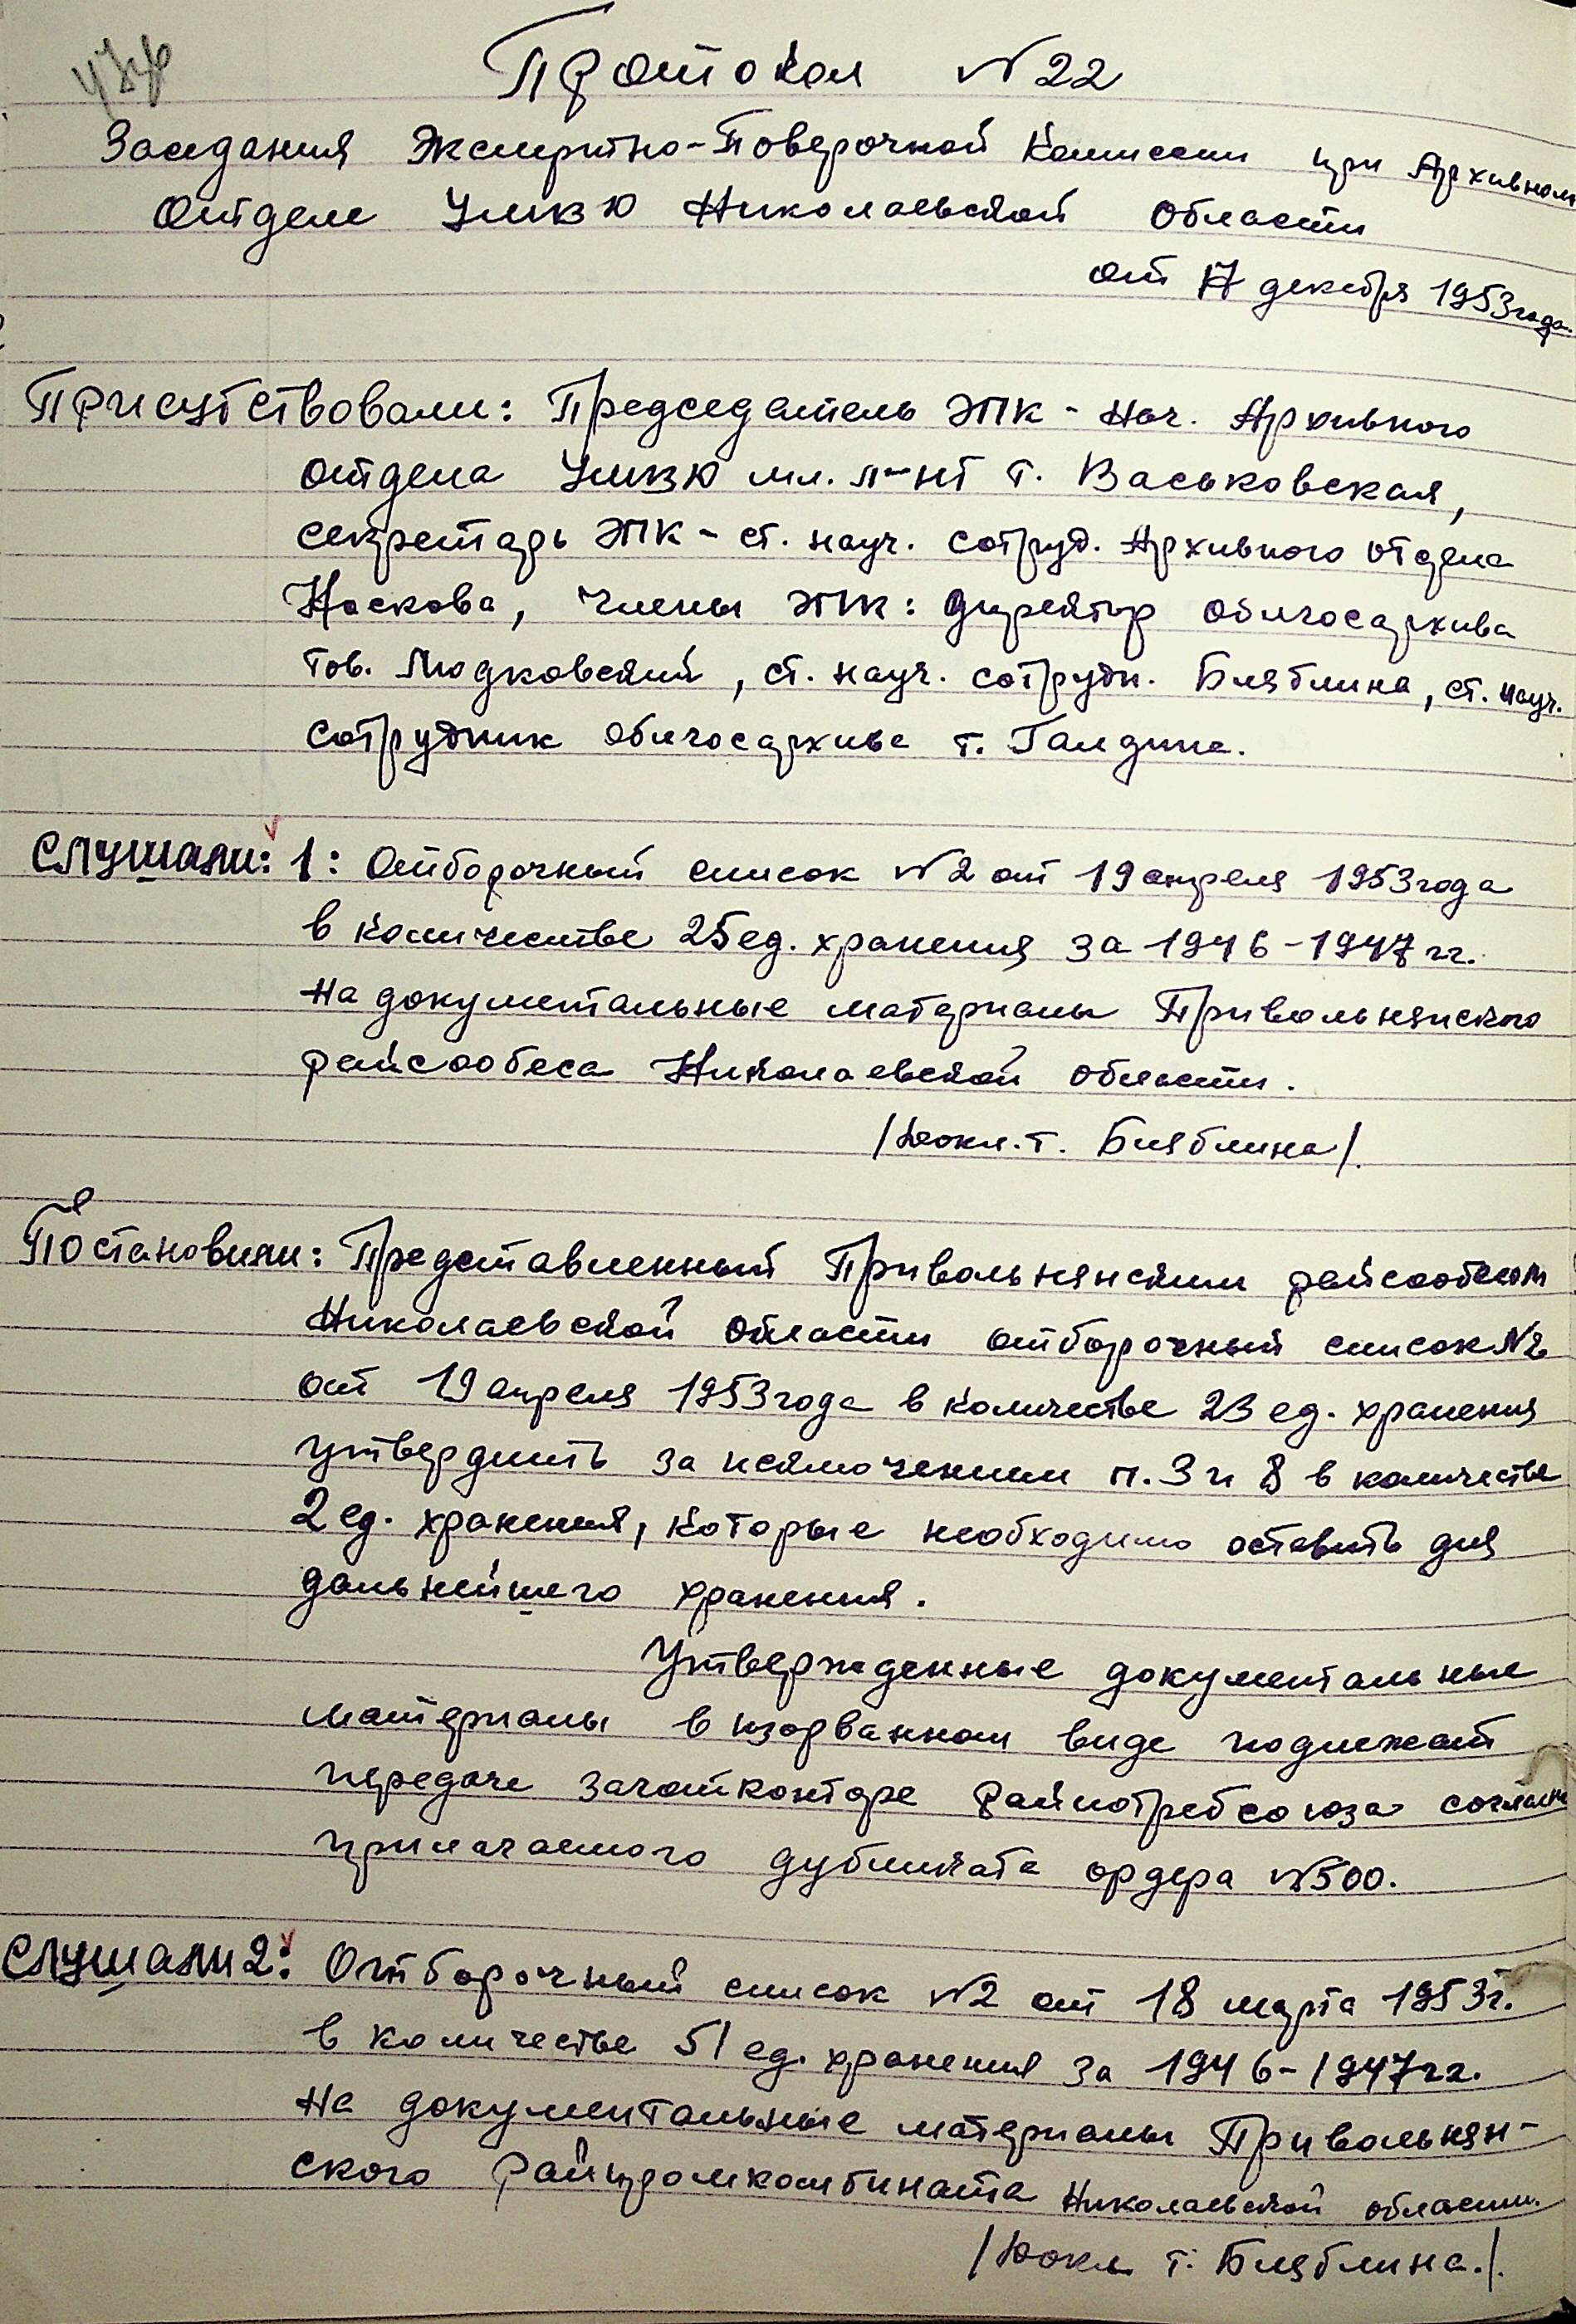 Протокол №22
Заседания Экспертно-Поверочной Комиссии при Архивном
отделе УМВД Николаевской области
от 17 декабря 1953 года.
Присутствовали: Председатель ЭПК - Нач. Архивного
отдела УМВД мл. л-нт т. Васьковская,
секретарь ЭПК - ст. науч. сотруд. Архивного отдела
Носкова, члены ЭПК: директор облгосархива
тов. Людковский, ст. науч. сотрудн. Бляблина, ст. науч.
сотрудник облгосархива т. Галдина.
Слушали: 1: Отборочный список №2 от 19 апреля 1953 года
в количестве 25 ед. хранения за 1946-1947 гг.
на документальные материалы Привольнянского
райсобеса Николаевской области.
/докл. т. Бляблина/.
Постановили: Представленный Привольнянским райсобесом
Николаевской области отборочный список №2
от 19 апреля 1953 года в количестве 23 ед. хранения
утвердить за исключением п. 3 и 8 в количестве
2 ед. хранения, которые необходимо оставить для
дальнейшего хранения.
Утвержденные документальные
материалы в изорванном виде подлежат
передаче заготконторе Райпотребсоюза согласно
прилагаемого дубликата ордера №500.
Слушали 2: Отборочный список №2 от 18 марта 1953 г.
в количестве 51 ед. хранения за 1946-1947 гг.
на документальные материалы Привольнян-
ского Райпромкомбината Николаевской области.
/докл. т. Бляблина./.